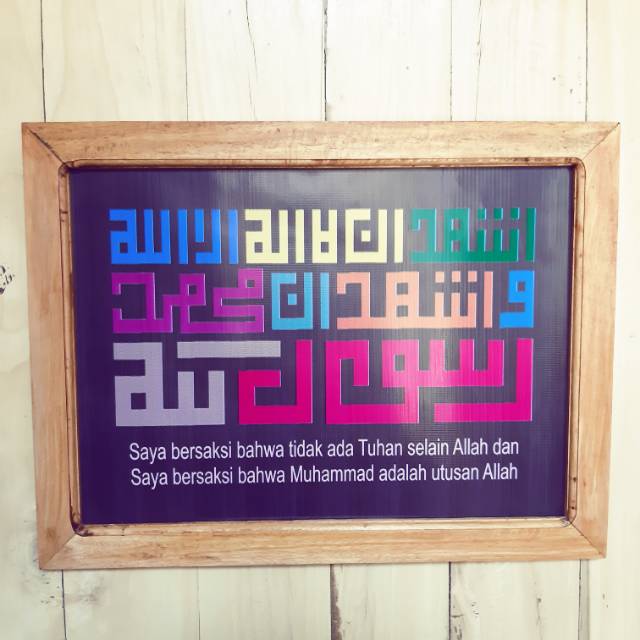 اشهد ان لا اله الا الله
و اشهد ان محمد
رسول الله
Saya bersaksi bahwa tidak ada Tuhan selain Allah dan
Saya bersaksi bahwa Muhammad adalah utusan Allah